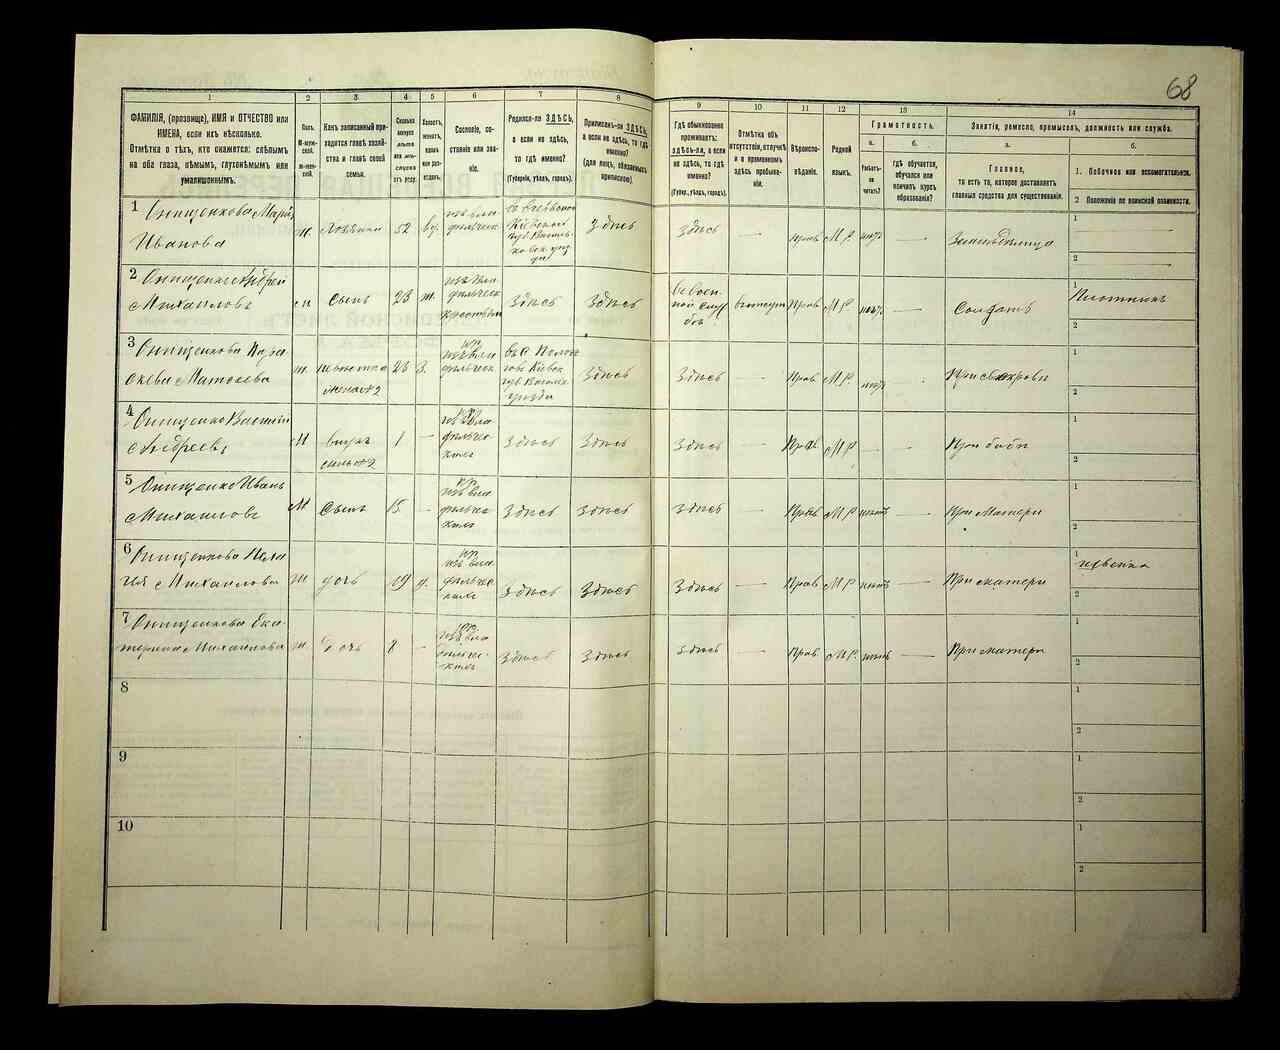 68
1 2 3 4 5 6 7 8 9 10 11 12 13 14
ФАМИЛІЯ, (прозвище), ИМЯ и ОТЧЕСТВО или
ИМЕНА, если ихъ нѣсколько.
Отмѣтка о тѣхъ, кто окажется: слѣпымъ
на оба глаза, нѣмымъ, глухонѣмымъ или
умалишоннымъ.
Полъ.
М-мужской.
Ж-женской.
Какъ записанный приходится главѣ хозяйства и главѣ своей семьи.
Сколько минуло лѣтъ или мѣсяцевъ отъ роду.
Холостъ, женатъ, вдовъ или разведенъ.
Сословіе, состояніе или званіе.
Родился-ли ЗДѢСЬ,
а если не здѣсь,
то гдѣ именно?
(Губернія, уѣздъ, городъ).
Приписанъ-ли ЗДѢСЬ,
а если не здѣсь, то гдѣ
именно?
(для лицъ, обязанныхъ
припискою).
Гдѣ обыкновенно
проживаетъ:
здѣсь-ли, а если
не здѣсь, то гдѣ
именно?
(Губер., уѣздъ, городъ).
Отмѣтка объ
отсутствіи, отлучкѣ
и о временномъ
здѣсь пребываніи.
Вѣроисповѣданіе.
Родной
языкъ.
Грамотность.
а.
Умѣетъ-ли
читать?
б.
гдѣ обучается,
обучался или
кончилъ курсъ
образованія?
Занятіе, ремесло, промыселъ, должность или служба.
а.
Главное,
то есть то, которое доставляетъ
главныя средства для существованія.
б.
1. Побочное или вспомогательное.
2 Положеніе по воинской повинности.
1 Онищенкова Марія
Иванова
ж. Хозяйка 52 вд.
Здѣсь Здѣсь — прав М.Р. нѣтъ —
1
2
2 Онищенко Андрей
Михаиловъ
м Сынъ 23 ж. Здѣсь Здѣсь
Прав М.Р. нѣтъ — Солдатъ
1 Плотникъ
2
3 Онищенкова Пара
скева Матвеева
ж. невѣстка 23 З.
жена №2
Здѣсь Здѣсь — Прав М.Р. нѣтъ При свекрови
1
2
4 Онищенко Василій
Андреевъ
М внукъ 1 — Здѣсь Здѣсь
сынъ №2
Здѣсь — Прав М.Р. — — При бабѣ
1
2
5 Онищенко Иванъ
Михаиловъ
М Сынъ 15 — Здѣсь Здѣсь
Здѣсь — Прав М.Р. нѣтъ — При Матери
1
2
6 Онищенкова Пела
гія Михаилова
ж дочь 19 д. Здѣсь Здѣсь
Здѣсь — Прав М.Р. нѣтъ — При матери
1 швейка
2
7 Онищенкова Ека
терина Михаилова
ж Дочь 8 — Здѣсь Здѣсь
Здѣсь — Прав. М.Р. нѣтъ При матери
1
2
8
1
2
9
1
2
10
1
2